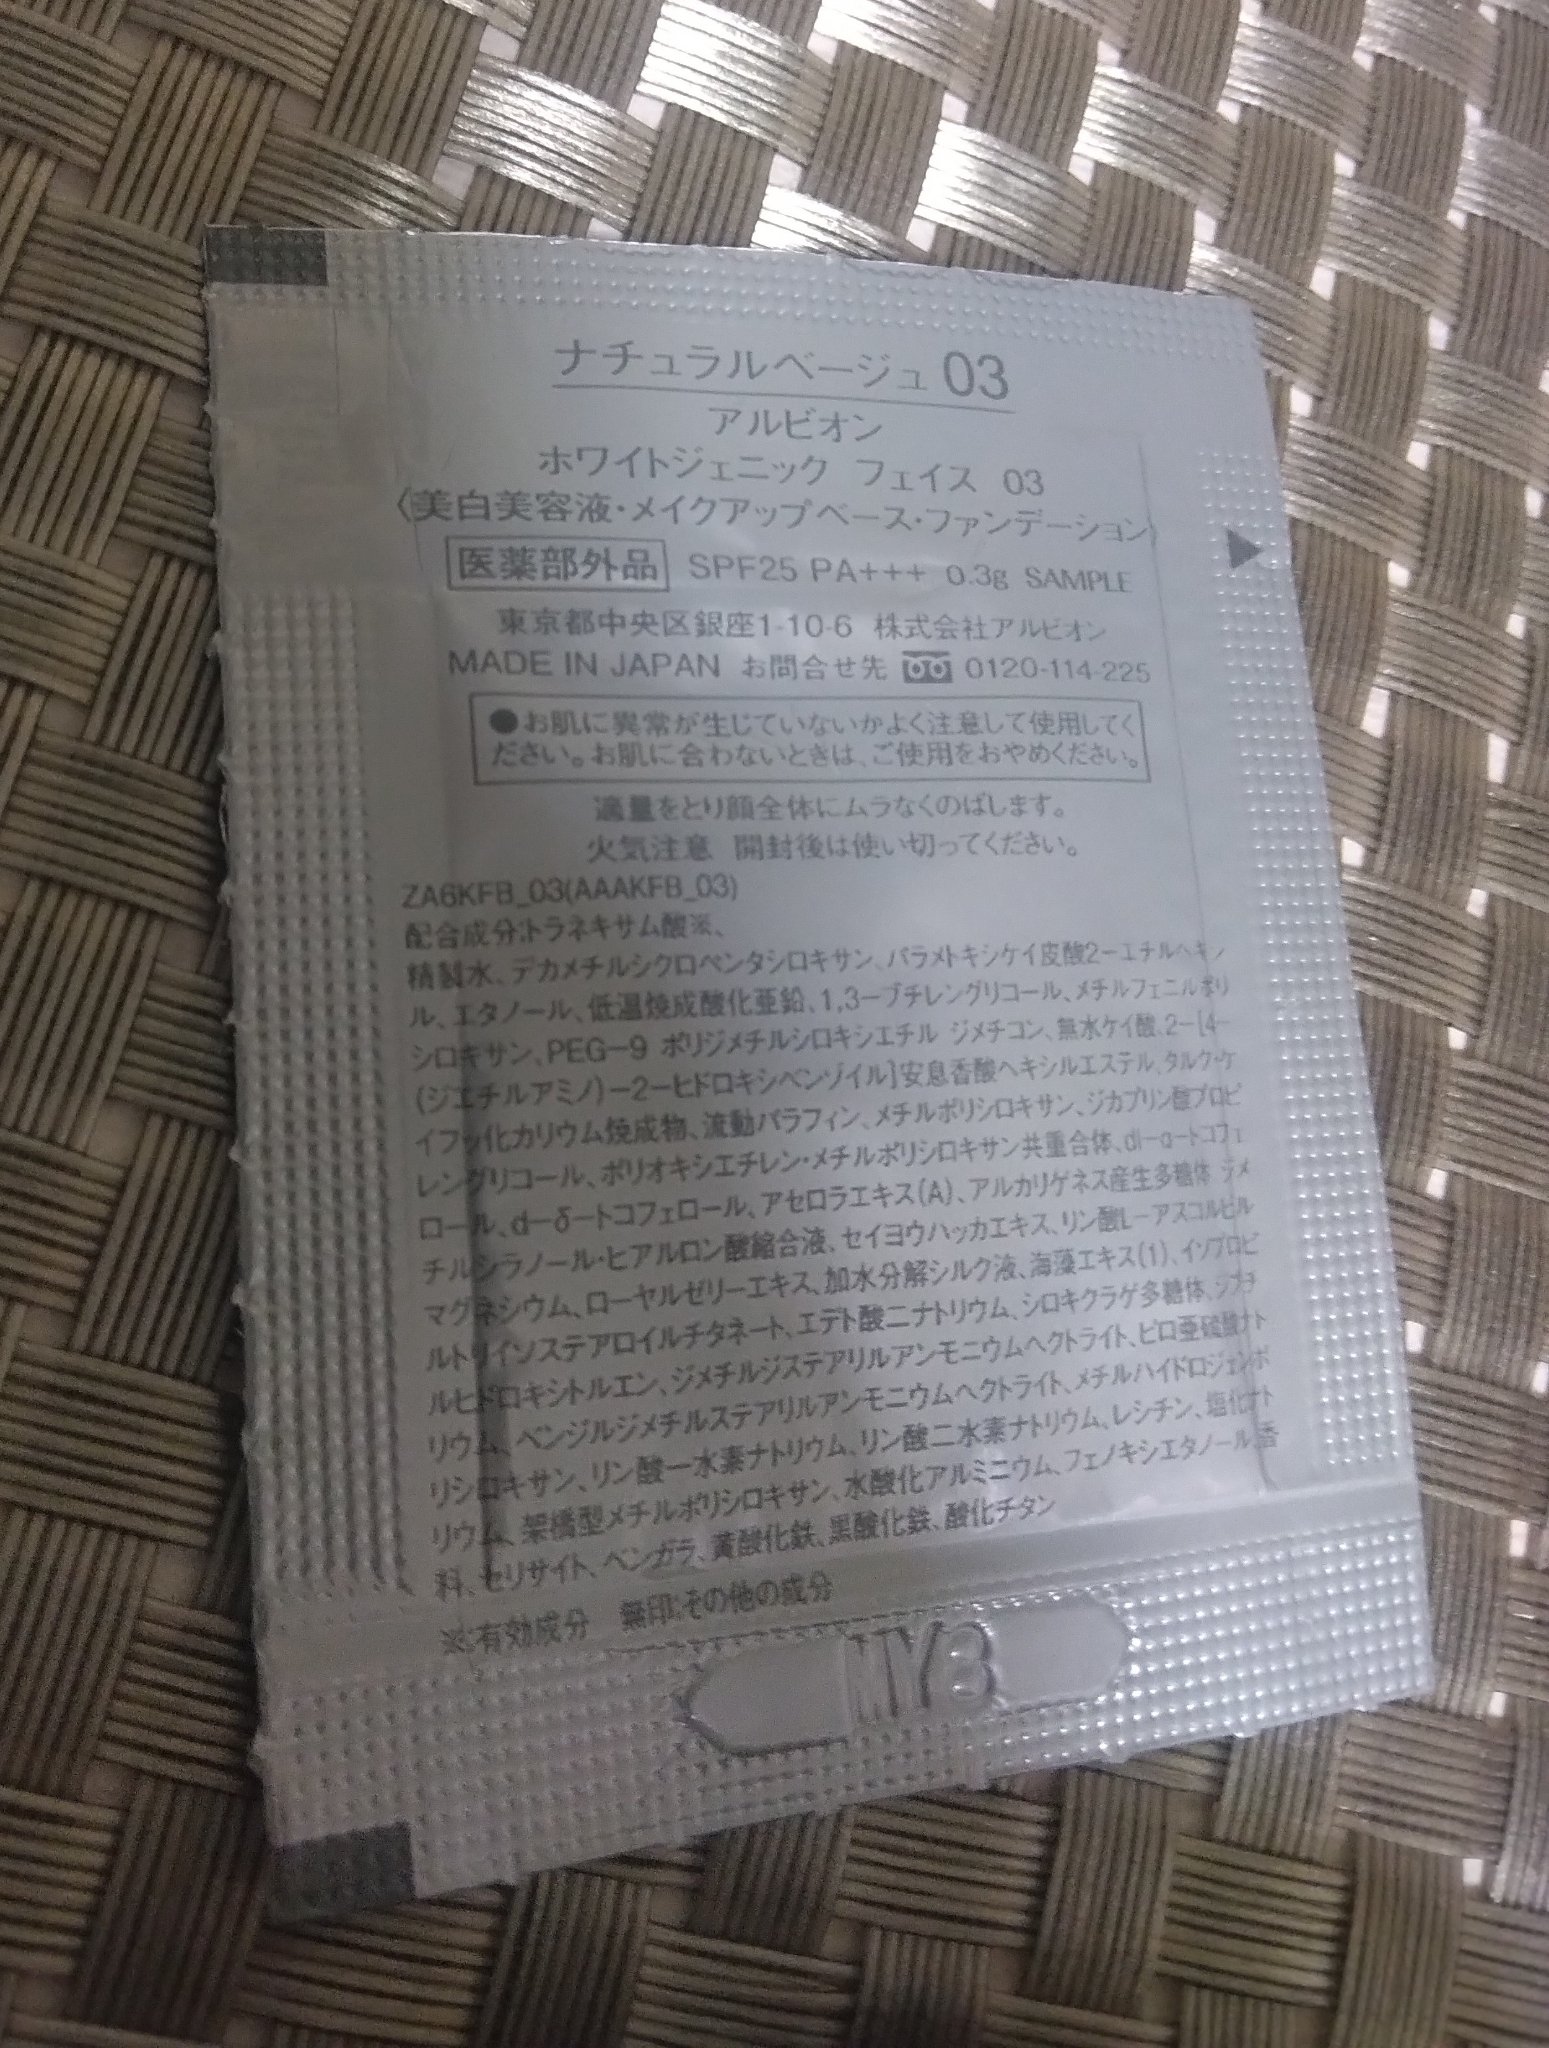 ナチュラルベージュ 03
アルビオン
ホワイトジェニック フェイス 03
〈美白美容液・メイクアップベース・ファンデーション〉
医薬部外品 SPF25 PA+++ 0.3g SAMPLE
東京都中央区銀座1-10-6 株式会社アルビオン
MADE IN JAPAN お問合せ先 0120-114-225
●お肌に異常が生じていないかよく注意して使用してく
ださい。お肌に合わないときは、ご使用をおやめください。
適量をとり顔全体にムラなくのばします。
火気注意 開封後は使い切ってください。
ZA6KFB_03(AAAKFB_03)
配合成分:トラネキサム酸※、
精製水、デカメチルシクロペンタシロキサン、パラメトキシケイ皮酸2ー エチルヘキシ
ル、エタノール、低温焼成酸化亜鉛、1,3ーブチレングリコール、メチルフェニルポリ
シロキサン、PEGー9 ポリジメチルシロキシエチル ジメチコン、無水ケイ酸、2ー[4ー
(ジエチルアミノ)ー2ーヒドロキシベンゾイル]安息香酸ヘキシルエステル、タルク・ケ
イフッ化カリウム焼成物、流動パラフィン、メチルポリシロキサン、ジカプリン酸プロピ
レングリコール、ポリオキシエチレン・メチルポリシロキサン共重合体、dlーαートコフェ
ロール、dーδートコフェロール、アセロラエキス(A)、アルカリゲネス産生多糖体、ジメ
チルシラノール・ヒアルロン酸縮合液、セイヨウハッカエキス、リン酸Lーアスコルビル
マグネシウム、ローヤルゼリーエキス、加水分解シルク液、海藻エキス(1)、イソプロピ
ルトリイソステアロイルチタネート、エデト酸二ナトリウム、シロキクラゲ多糖体、ジブチ
ルヒドロキシトルエン、ジメチルジステアリルアンモニウムヘクトライト、ピロ亜硫酸ナト
リウム、ベンジルジメチルステアリルアンモニウムヘクトライト、メチルハイドロジェンポ
リシロキサン、リン酸一水素ナトリウム、リン酸二水素ナトリウム、レシチン、塩化ナト
リウム、架橋型メチルポリシロキサン、水酸化アルミニウム、フェノキシエタノール、香
料、セリサイト、ベンガラ、黄酸化鉄、黒酸化鉄、酸化チタン
※:有効成分 無印:その他の成分
MY3